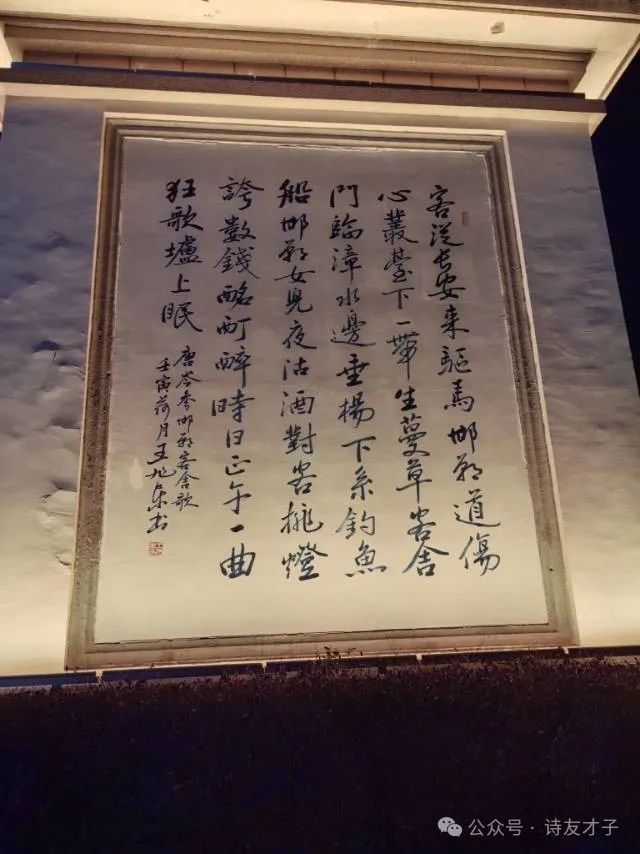 客従长安来驅馬邯鄲道傷
心叢臺下一帶生蔓草客舍
門臨漳水邊垂楊下系釣魚
船邯鄲女兒夜沽酒對客挑燈
誇數錢酩酊醉時日正午一曲
狂歌壚上眠
唐岑参邯鄲客舍歌
壬寅荷月王旭东书
公众号 · 诗友才子